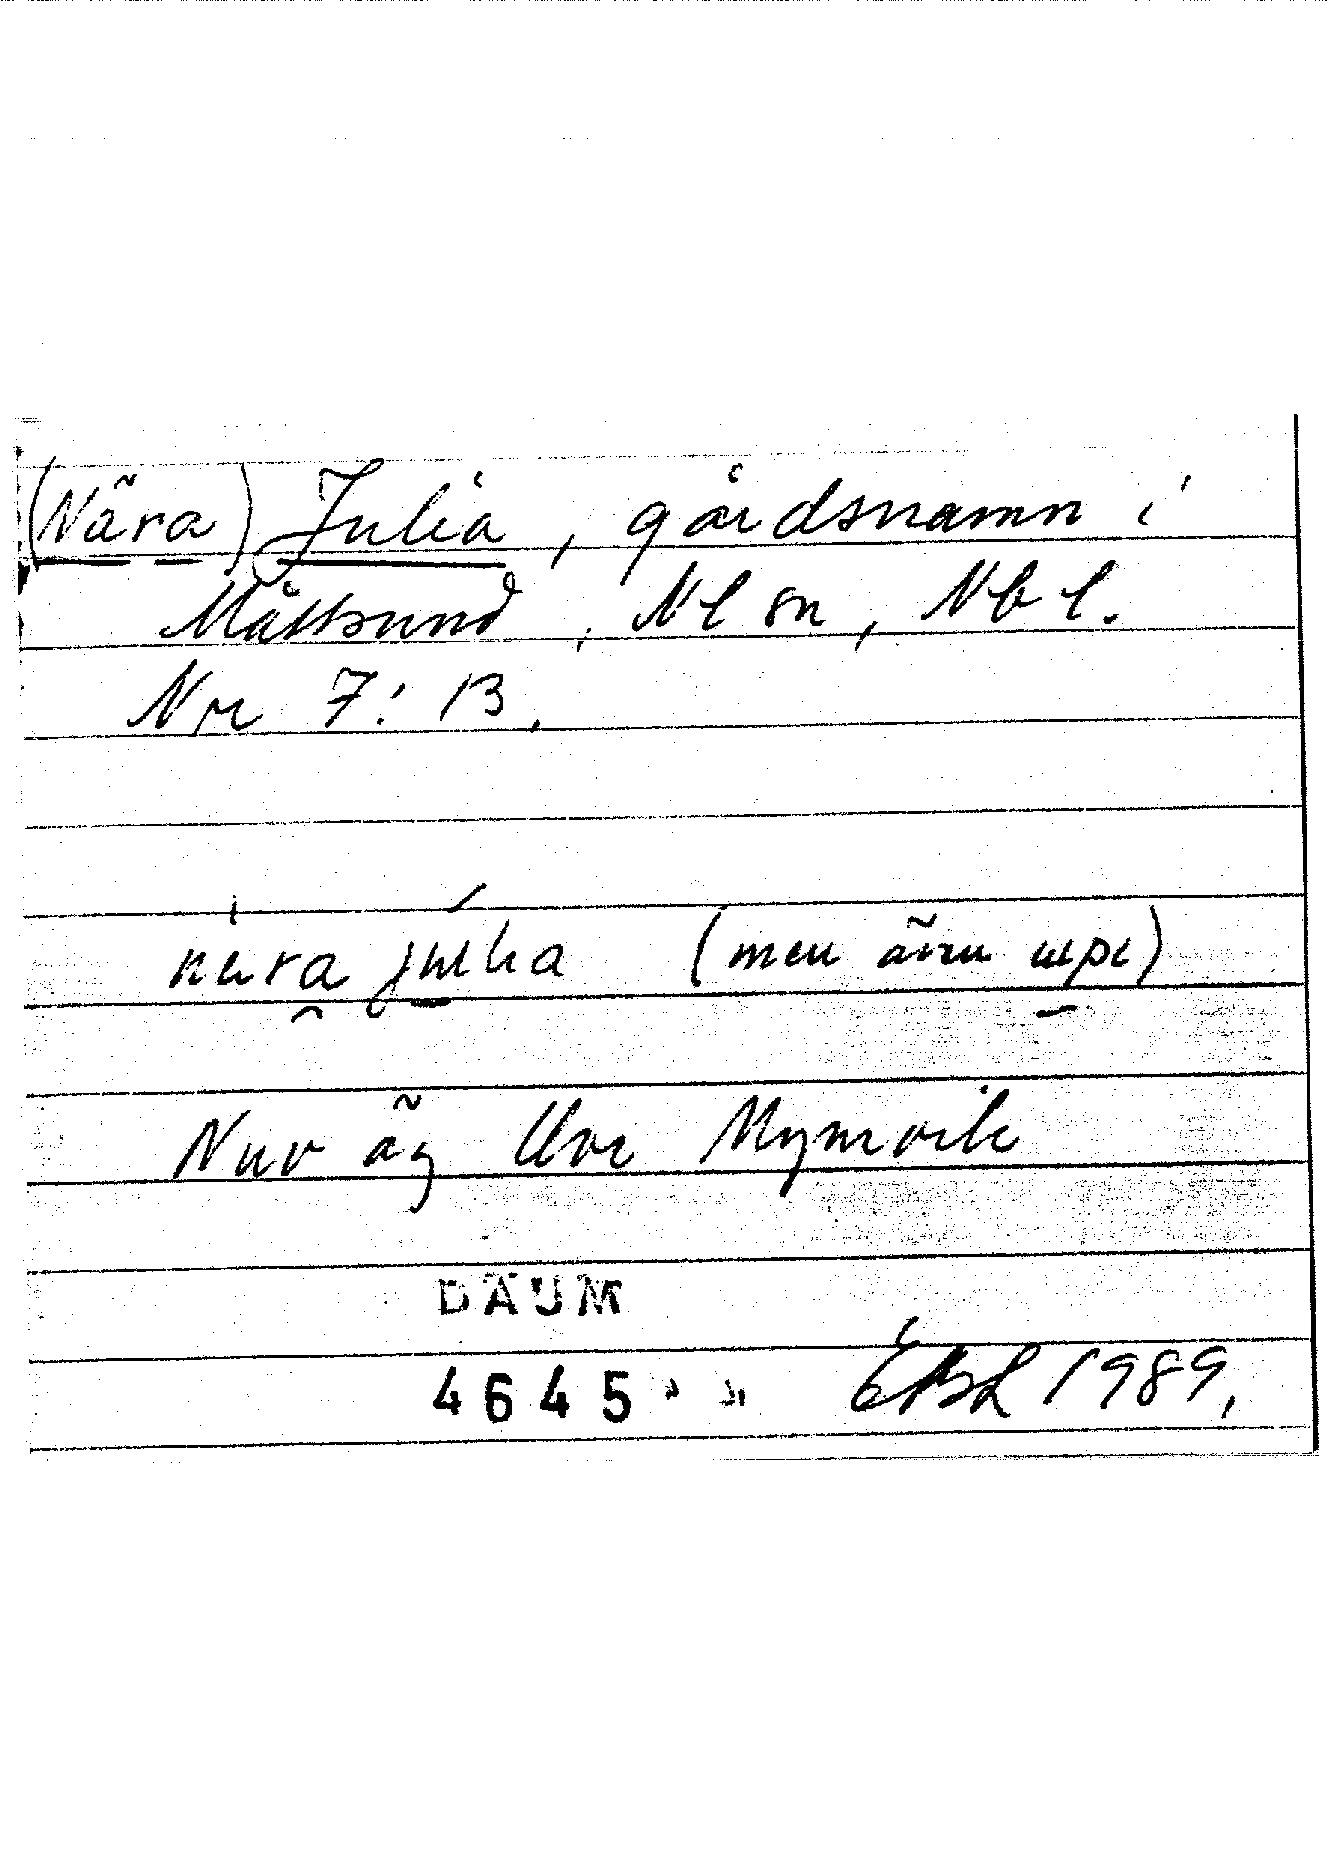 (Nära) Julia, gårdsnamn i
Måttsund, Nl sn, Nb l.
Nr 7:13.
nära julia (men även uppe)
Nuv äg Uve Mymvik
DAUM
4645
EBL 1989.